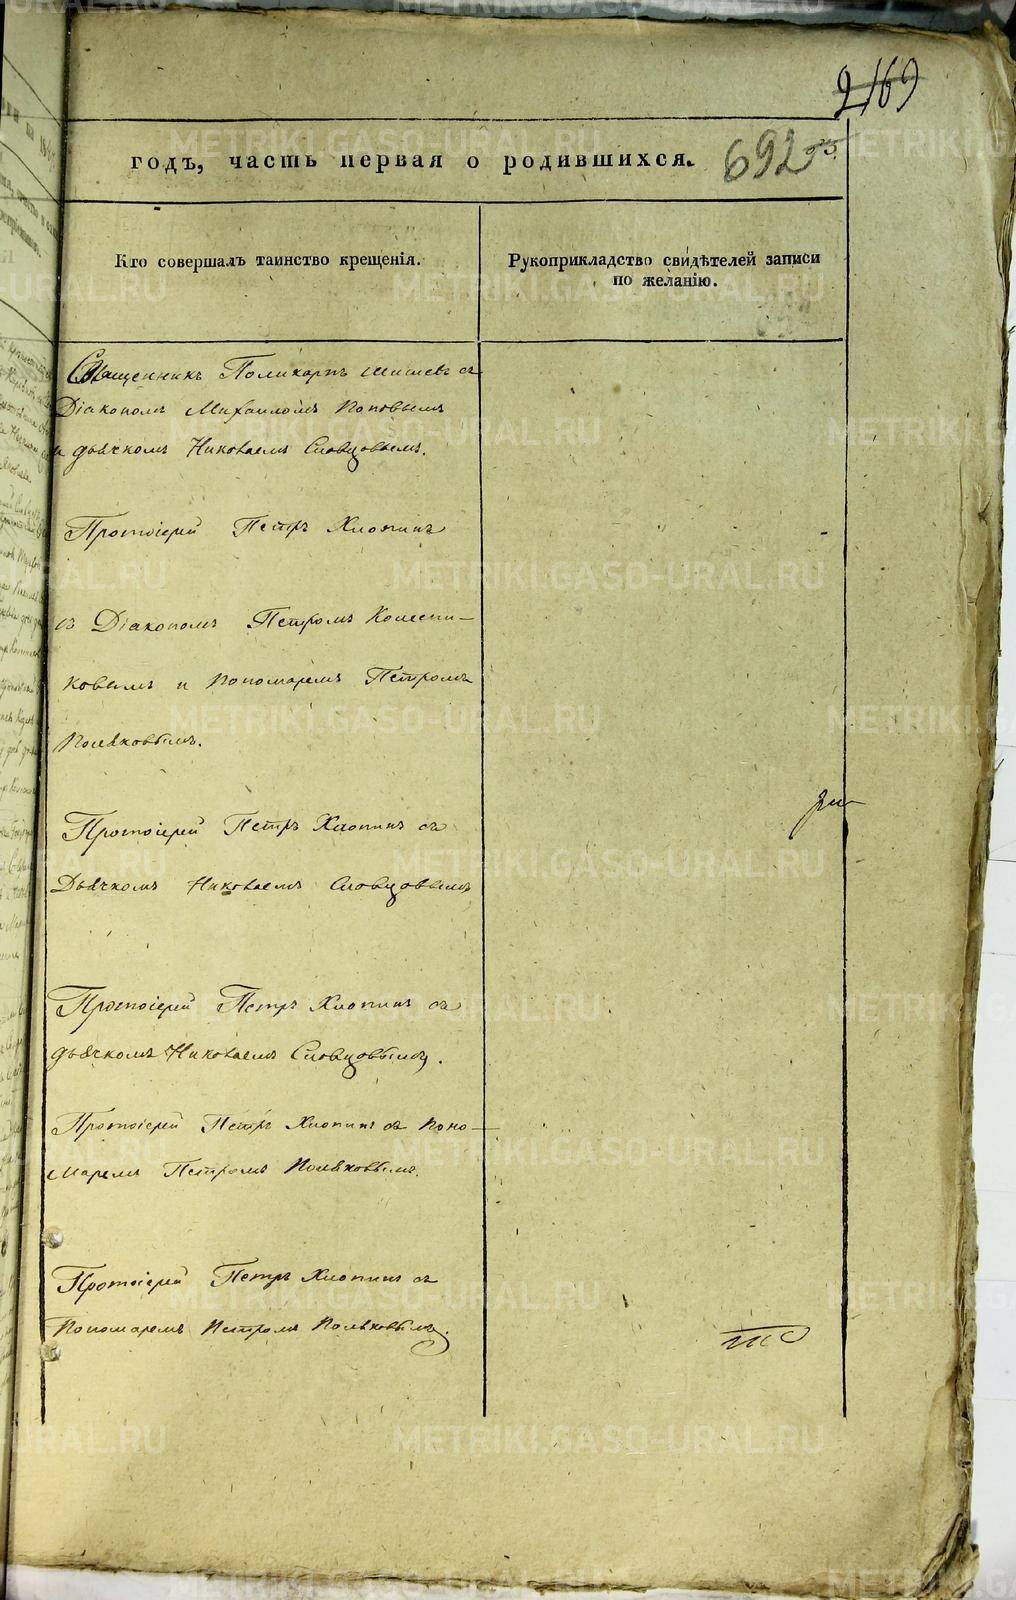 2169
годъ, часть первая о родившихся.
692
Кто совершалъ таинство крещенія.
Рукоприкладство свидѣтелей записи
по желанію.
Священникъ Поликарпъ Шишевъ съ
Діакономъ Михаиломъ Поповымъ
и дьячкомъ Николаемъ Словцовымъ.
Протоіерей Петръ Хлопинъ
съ Діакономъ Петромъ Колесни-
ковымъ и Пономаремъ Петромъ
Поляковымъ.
Протоіерей Петръ Хлопинъ съ
Дьячкомъ Николаемъ Словцовымъ
Протоіерей Петръ Хлопинъ съ
дьячкомъ Николаемъ Словцовымъ.
Протоіерей Петръ Хлопинъ съ Поно-
маремъ Петромъ Поляковымъ.
Протоіерей Петръ Хлопинъ съ
Пономаремъ Петромъ Поляковымъ.
METRIKI.GASO-URAL.RU